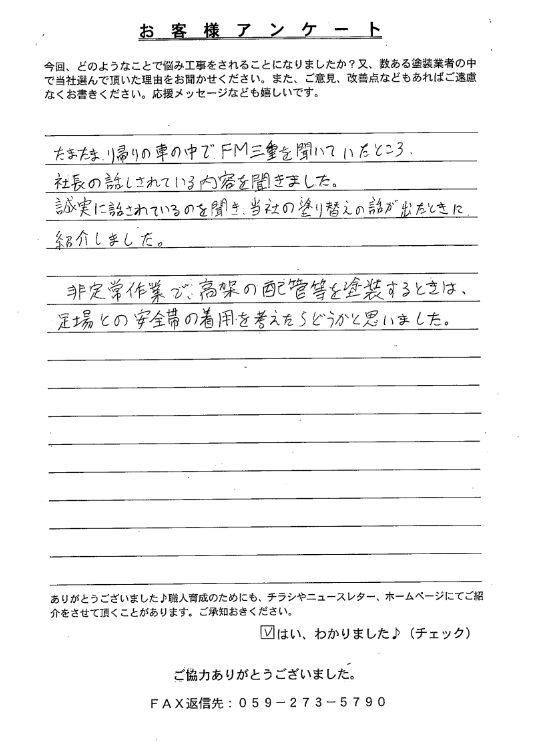 お客様アンケート
今回、どのようなことで悩み工事をされることになりましたか？又、数ある塗装業者の中
で当社選んで頂いた理由をお聞かせください。また、ご意見、改善点などもあればご遠慮
なくお書きください。応援メッセージなども嬉しいです。
たまたま、帰りの車の中で、FM三重を聞いていたところ、
社長の話しされている内容を聞きました。
誠実に話されているのを聞き、当社の塗り替えの話が出たときに
紹介しました。
非定常作業で、高架の配管等を塗装するときは、
足場との安全帯の着用を考えたらどうかと思いました。
ありがとうございました♪職人育成のためにも、チラシやニュースレター、ホームページにてご紹
介をさせて頂くことがあります。ご承知おきください。
☑はい、わかりました♪（チェック）
ご協力ありがとうございました。
ＦＡＸ返信先：０５９－２７３－５７９０